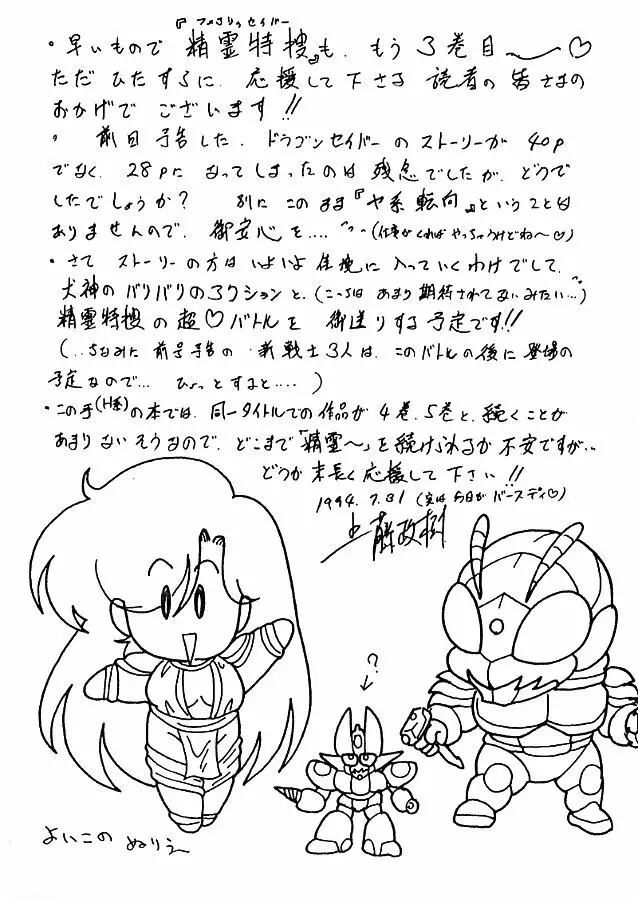 『フェアリィセイバー
・早いもので 精霊特捜』も、もう 3巻目〜♡
ただ ひたすらに、応援して下さる 読者の 皆さまの
おかげで ございます!!
・ 前回 予告した、ドラゴンセイバーの ストーリーが 40p
でなく、28pに なってしまったのは 残念でしたが、どうで
したでしょうか? 別に このまま『ヤ系転向』ということは
ありませんので、御安心を.... (仕事がくればやっちゃうけどね〜♡)
・さて ストーリーの方は いよいよ 佳境に 入っていくわけでして、
犬神の バリバリの アクションと、(こっちは あまり 期待されてないみたい...)
精霊特捜の 超♡バトルを 御送りする予定です!!
(..ちなみに 前号予告の 新戦士3人は、このバトルの後に 登場の
予定なので... ひょっとすると.... )
・この手(H系)の本では、同一タイトルでの作品が 4巻、5巻と、続くことが
あまりないそうなので、どこまで「精霊〜」を続けられるか 不安ですが..
どうか 末長く 応援して 下さい!!
1994.7.31 (実は今日がバースディ♡)
上藤政樹
?
よいこの ぬりえ